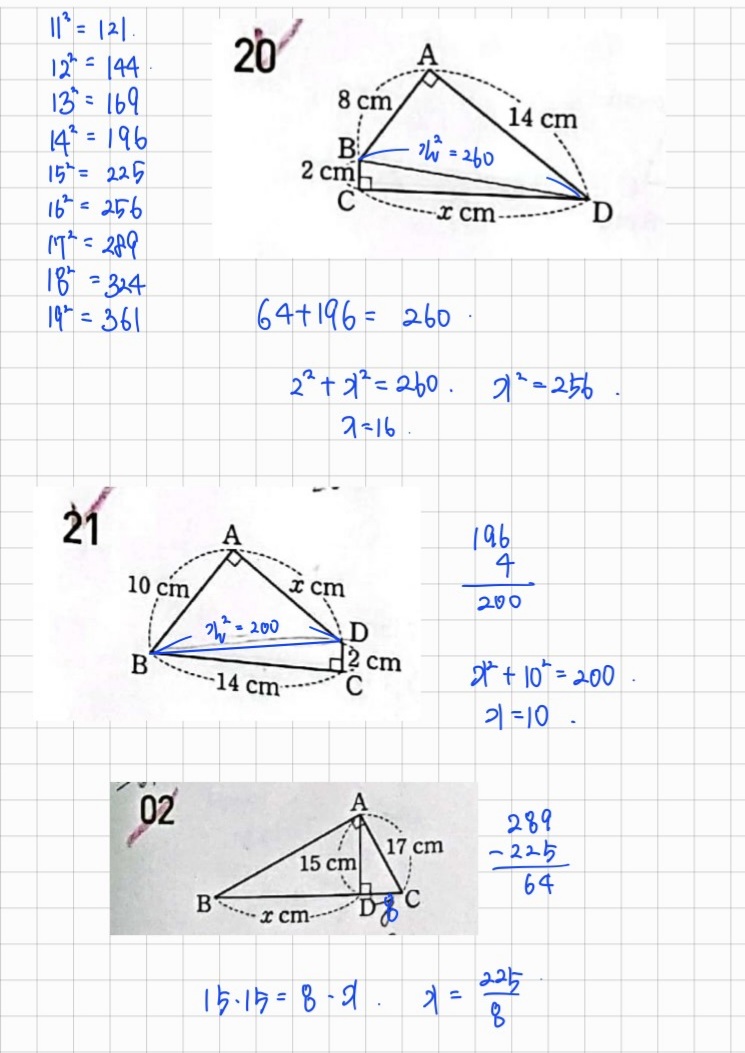 11² = 121.
12² = 144.
13² = 169
14² = 196
15² = 225
16² = 256
17² = 289
18² = 324
19² = 361
20
A
8 cm
14 cm
B
= 260
2 cm
C
x cm
D
64+196 = 260.
2² + x² = 260. x² = 256.
x = 16.
21
A
10 cm
x cm
= 200
D
B
2 cm
14 cm
C
196
4
200
x² + 10² = 200.
x = 10.
02
A
17 cm
15 cm
B
x cm
D
8
C
289
- 225
64
15·15 = 8·x. x = 225/8